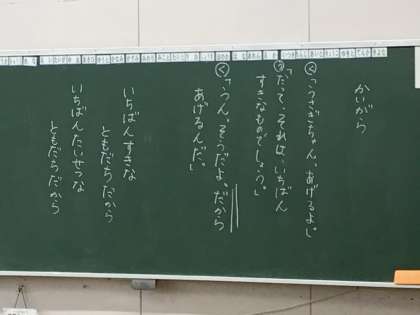 かいがら
く「うさぎちゃん。あげるよ。」
う「だって、それは、いちばん
すきなものでしょう。」
く「うん。そうだよ。だから
あげるんだ。」
いちばんすきな
ともだちだから
いちばんたいせつな
ともだちだから